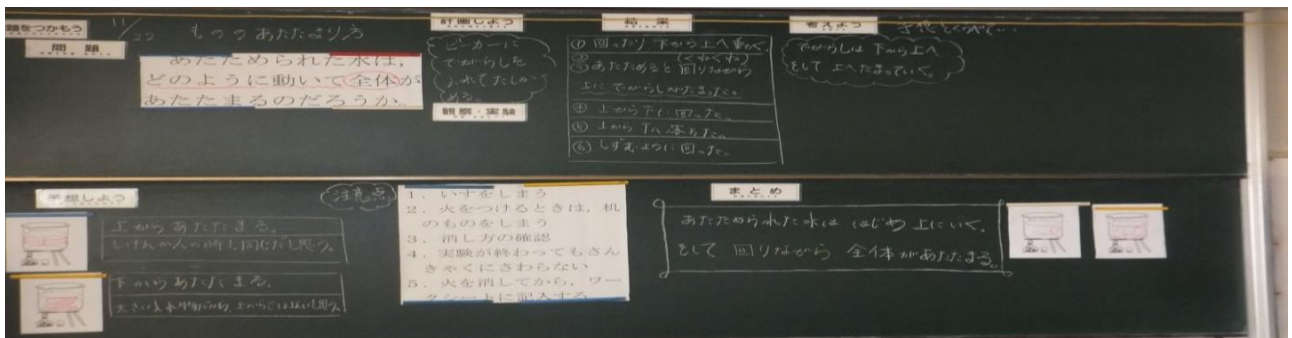 題をつかもう
11/22
もののあたたまり方
問題
あたためられた水は，
どのように動いて全体が
あたたまるのだろうか。
計画しよう
ビーカーに
でがらしを
いれてたしか
める
観察・実験
結果
① 回ったり 下から上へ動く
②
③ あたためると 回りながら
(くねくね)
上に でがらしがたまった。
④ 上から下に回った。
⑤ 上から下へ落ちた。
⑥ しずむように回った。
考えよう
予想とくらべて
でがらしは 下から上へ
そして 上へたまっていく。
予想しよう
上からあたたまる。
しけんかんの時と同じだと思う。
下からあたたまる。
注意点
1．いすをしまう
2．火をつけるときは，机
のものをしまう
3．消し方の確認
4．実験が終わってもさん
きゃくにさわらない
5．火を消してから，ワー
クシートに記入する
まとめ
あたためられた水は はじめ上にいく。
そして 回りながら 全体があたたまる。